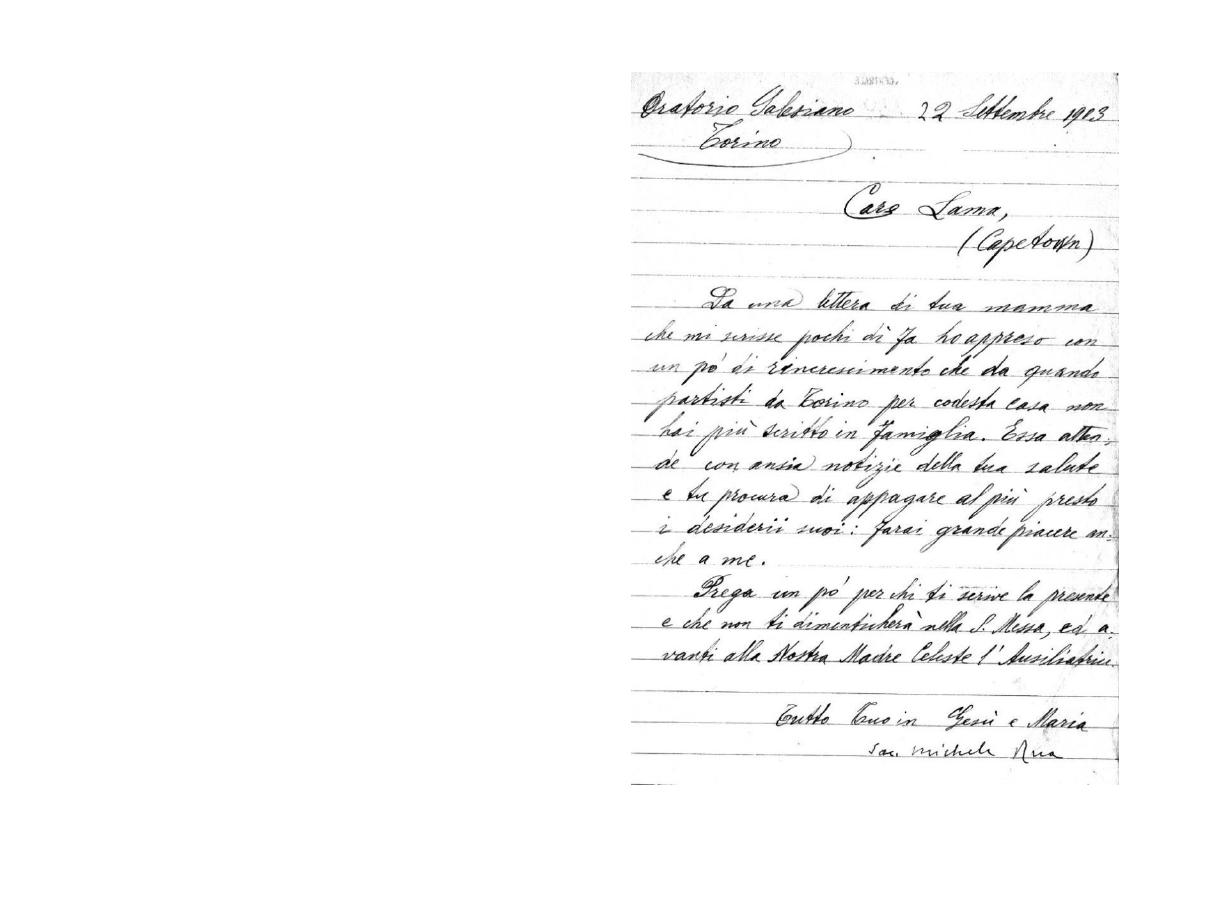 Oratorio Salesiano 22 Settembre 1903
Torino
Caro Lama,
(Capetown)
Da una lettera di tua mamma
che mi scrisse pochi dì fa ho appreso con
un pò di rincrescimento che da quando
partisti da Torino per codesta casa non
hai più scritto in famiglia. Essa atten:
de con ansia notizie della tua salute
e tu procura di appagare al più presto
i desiderii suoi: farai grande piacere an:
che a me.
Prega un pò per chi ti scrive la presente
e che non ti dimenticherà nella S. Messa, ed a.
vanti alla Nostra Madre Celeste l'Ausiliatrice.
Tutto Tuo in Gesù e Maria
Sac. Michele Rua